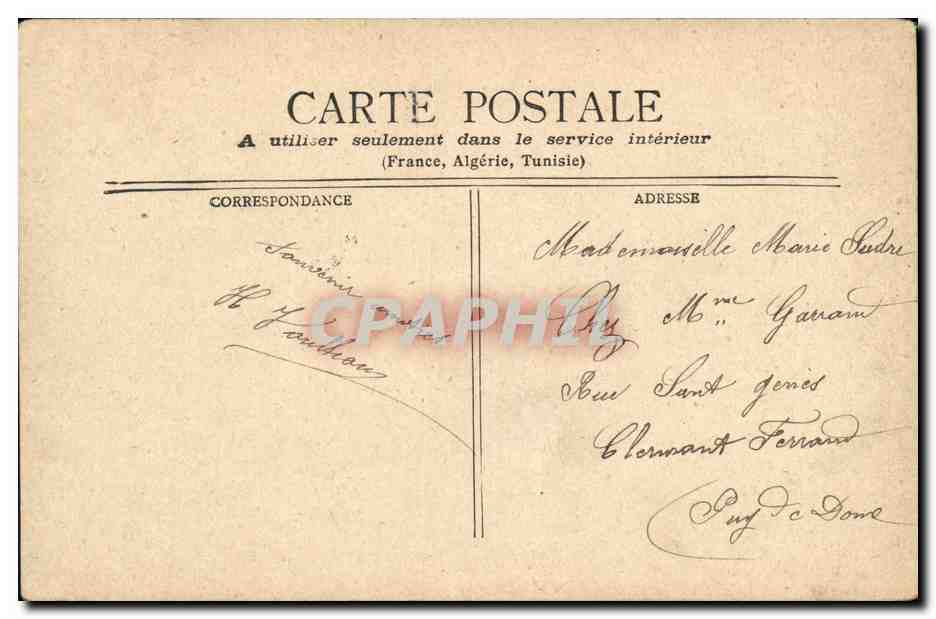 CARTE POSTALE
A utiliser seulement dans le service intérieur
(France, Algérie, Tunisie)
CORRESPONDANCE
Souvenir
H
ADRESSE
Mademoiselle Marie Sudre
Chez Mme Garrand
Rue Sant genes
Clermant Ferrand
Puy de Dome
CPAPHIL